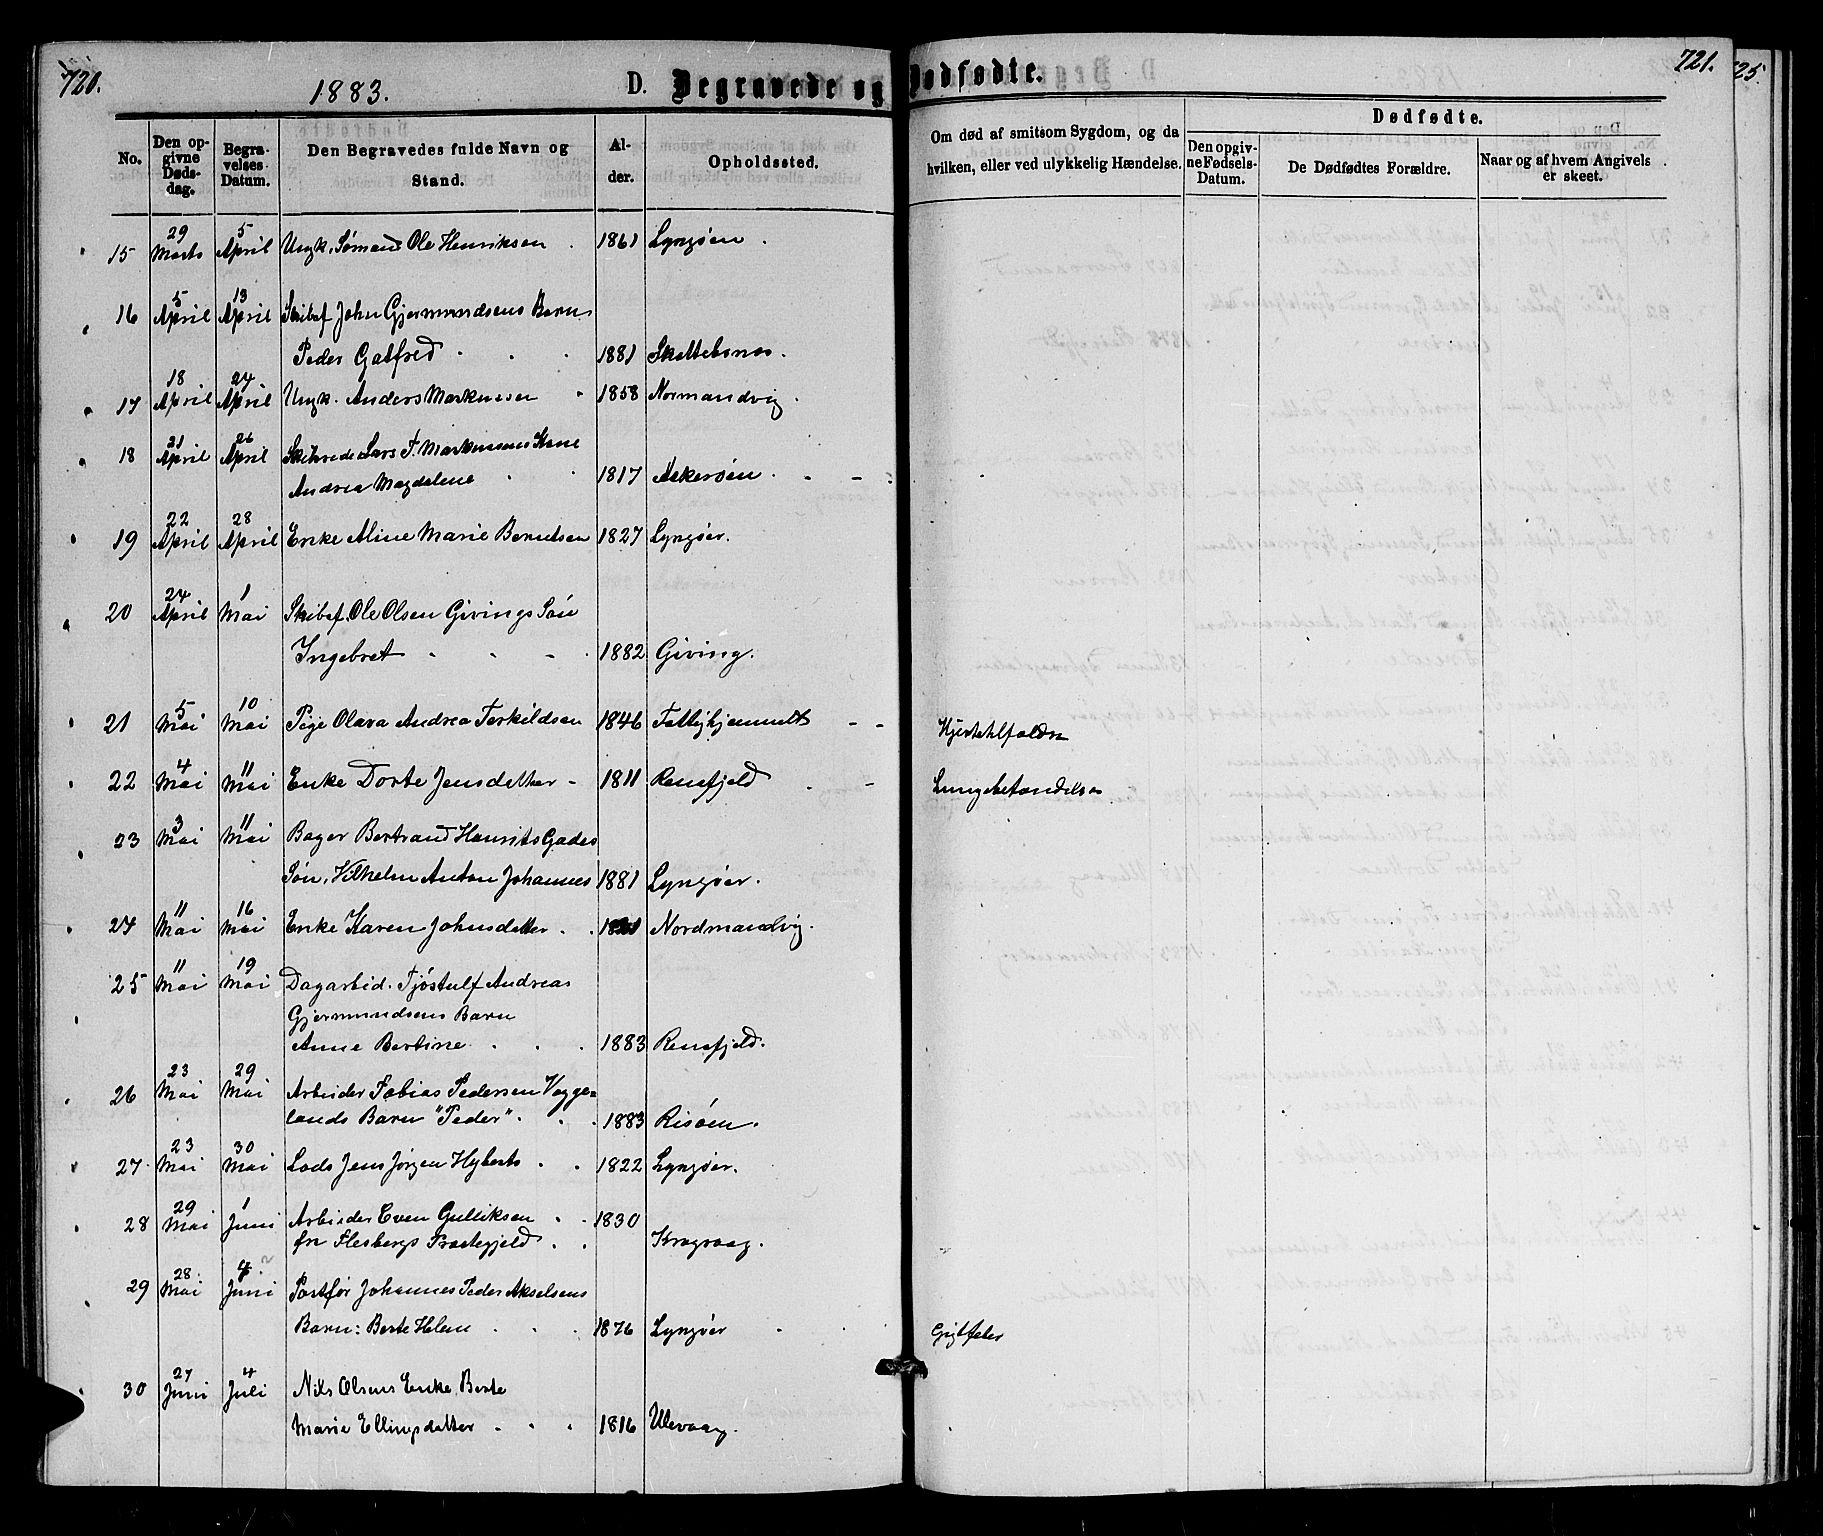 720.
1883.
D. Begravede og Dødfødte.
721.
725.
No.
Den opgivne Dødsdag.
Begravelses Datum.
Den Begravedes fulde Navn og Stand.
Alder.
Opholdssted.
Om død af smitsom Sygdom, og da hvilken, eller ved ulykkelig Hændelse.
Dødfødte.
Den opgivne Fødsels-Datum.
De Dødfødtes Forældre.
Naar og af hvem Angivelse er skeet.
15 29 Marts 5 April Ungk. Sømand Ole Henriksen 1861 Lyngøen.
16 5 April 13 April Skibsf John Gjermundsens Barn
Peder Gotfred 1881 Skottebonæs.
17 18 April 24 April Ungk. Anders Markussen 1858 Normandvig.
18 21 April 26 April Skibrede Lars T. Markussens Kone
Andrea Magdalene 1817 Askerøen.
19 22 April 28 April Enke Aline Marie Berntsen 1827 Lyngøer.
20 24 April 1 Mai Skibsf. Ole Olsen Givings Søn
Ingebret 1882 Giving.
21 5 Mai 10 Mai Pige Olava Andrea Terkildsen 1846 Fattighjemmet
22 4 Mai 11 Mai Enke Dorte Jensdatter 1811 Renefjeld Lungebetændelse
23 3 Mai 11 Mai Bager Bertrand Hanrits Gades
Søn, Vilhelm Anton Johannes 1881 Lyngøer.
24 11 Mai 16 Mai Enke Karen Johnsdatter Nordmandvig.
25 11 Mai 19 Mai Dagarbid. Tjøstulf Andreas
Gjermundsens Barn
Anne Bertine 1883 Renefjeld.
26 23 Mai 29 Mai Arbeider Tobias Pedersen Vegge=
lands Barn "Peder" 1883 Risøen.
27 23 Mai 30 Mai Lods Jens Jørgen Hyberts 1822 Lyngøer.
28 29 Mai 1 Juni Arbeider Even Gulliksen 1830
fra Flesbergs Præstegjeld Kragvaag.
29 28 Mai 4 Juni Postfør Johannes Peder Akselsens
Barn: Berte Helene 1876 Lyngøer Gigtfeber
30 27 Juni 4 Juli Nils Olsens Enke, Berte
Marie Ellingsdatter 1816 Ulevaag.